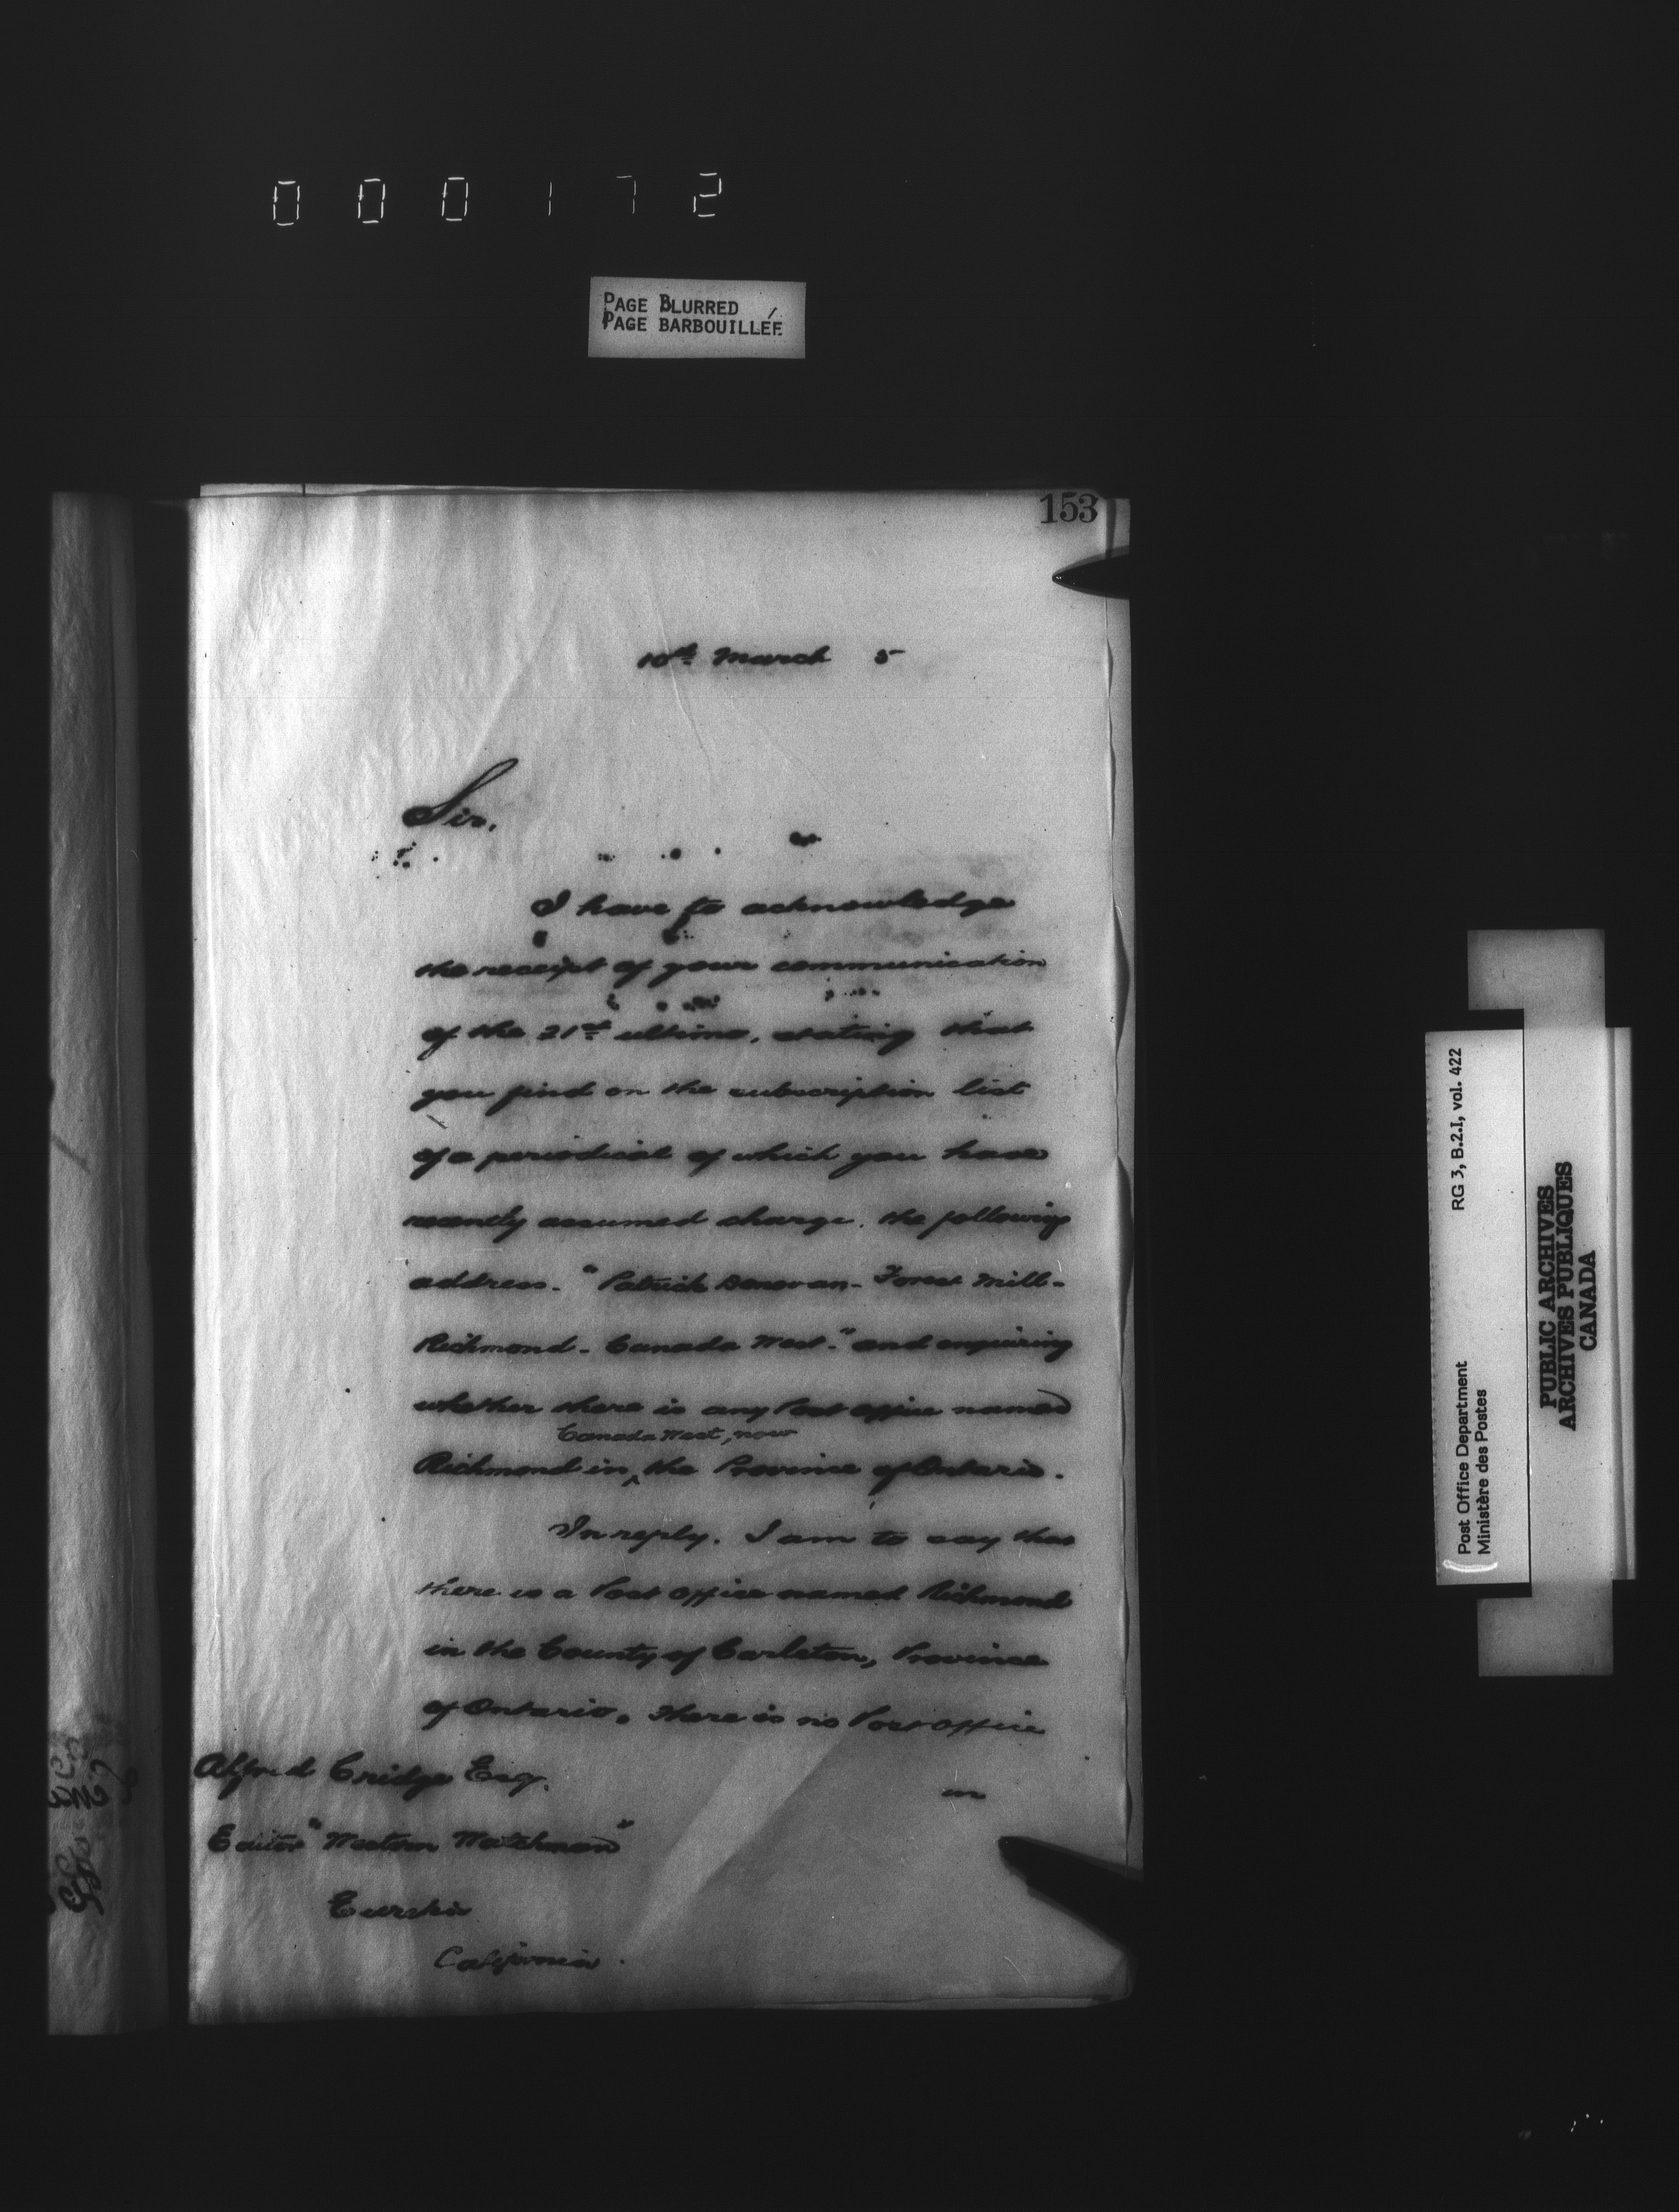 000172
PAGE BLURRED
PAGE BARBOUILLÉE
153
10th March 5
Sir,
I have to acknowledge
the receipt of your communication
of the 21st ultimo, stating that
you find on the subscription list
of a periodical of which you have
recently assumed charge, the following
address - "Patrick Donovan - Forest Mill -
Richmond - Canada West -" and enquiring
whether there is any Post Office named
Canada West, now
Richmond in ^ the Province of Ontario.
In reply, I am to say that
there is a Post Office named Richmond
in the County of Carleton, Province
of Ontario. There is no Post Office
in
Alfred Cridge Esq.
Editor "Western Watchman"
Eureka
California.
Post Office Department RG 3, B.2.I, vol. 422
Ministère des Postes
PUBLIC ARCHIVES
ARCHIVES PUBLIQUES
CANADA